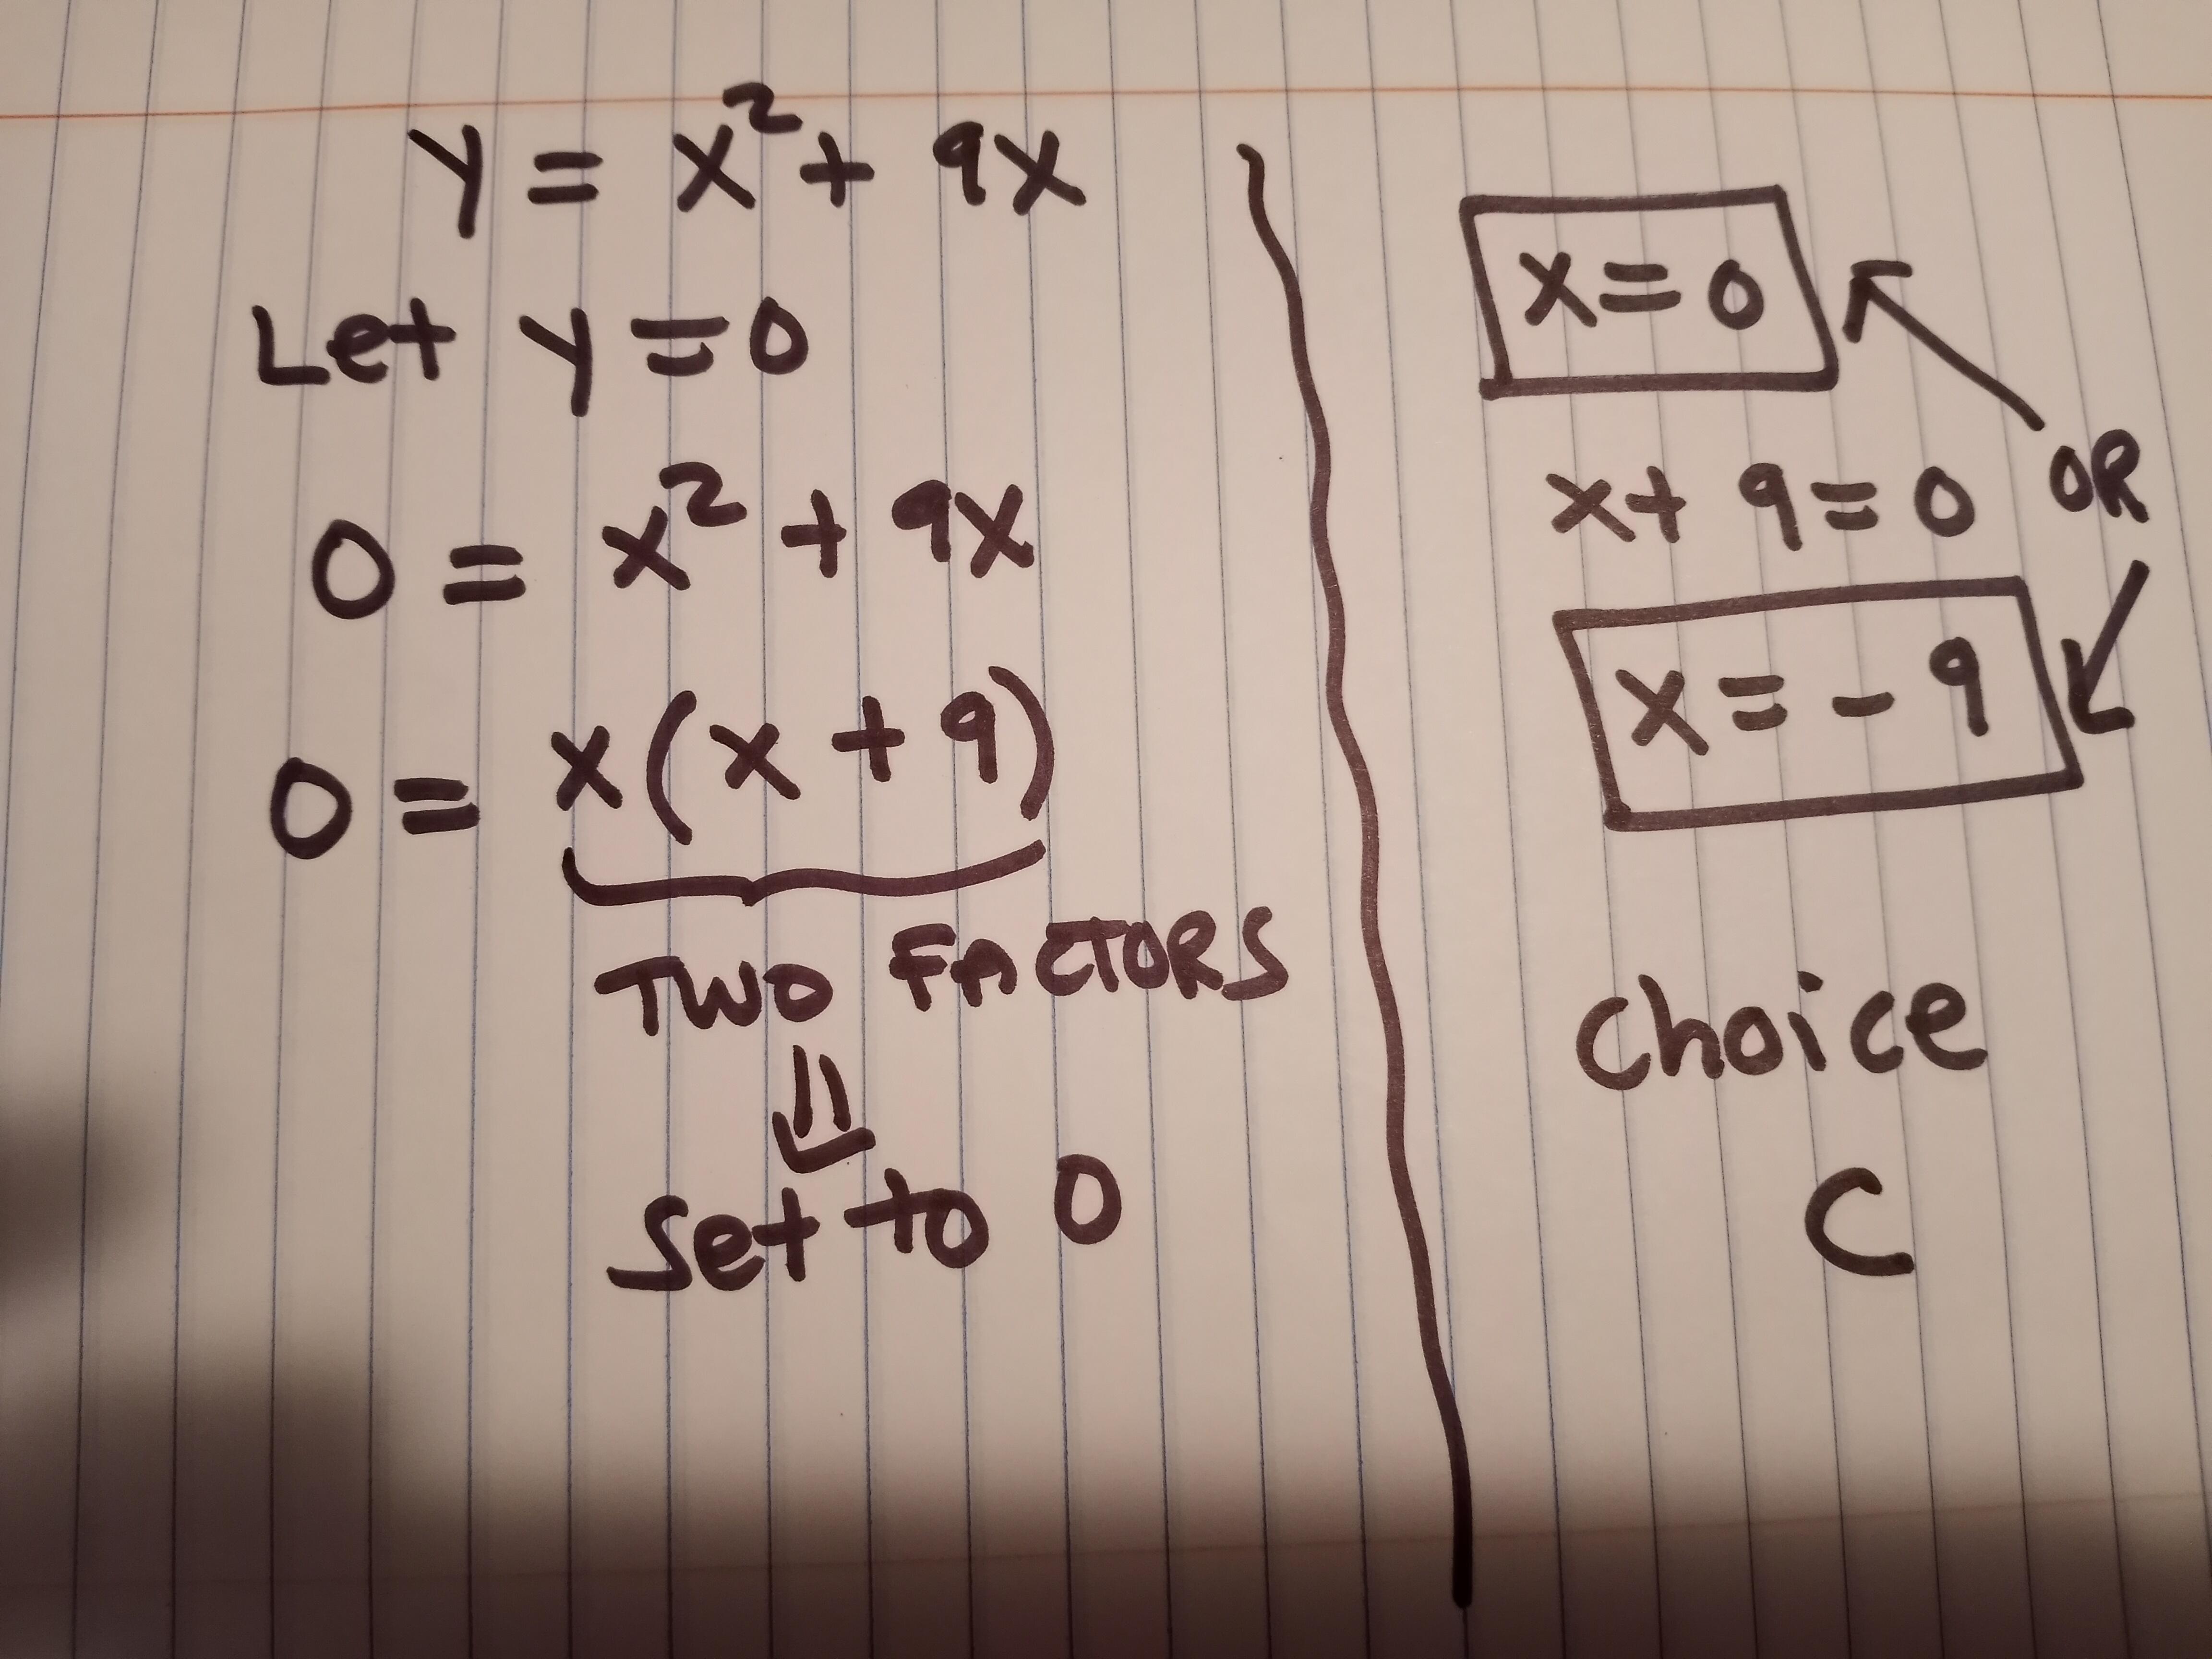 y = x² + 9x
Let y = 0
0 = x² + 9x
0 = x(x + 9)
TWO FACTORS
Set to 0
x = 0
OR
x + 9 = 0
x = - 9
choice
C